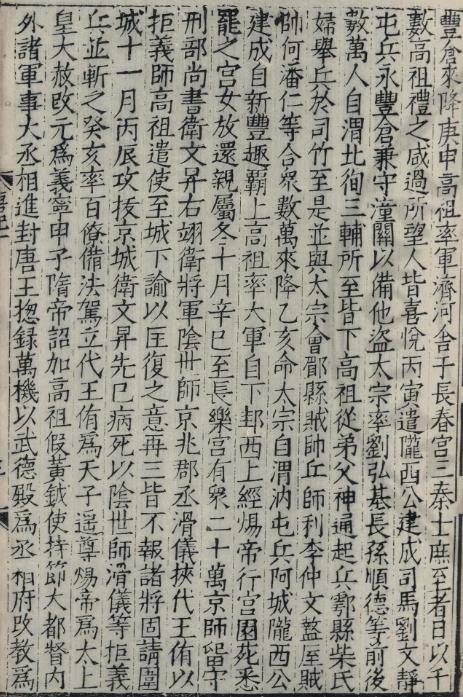 豐倉來降庚申高祖率軍濟河舍于長春宮三秦士庶至者日以千
數高祖禮之咸過所望人皆喜悅丙寅遣隴西公建成司馬劉文靜
屯兵永豐倉兼守潼關以備他盜太宗率劉弘基長孫順德等前後
數萬人自渭北徇三輔所至皆下高祖從弟父神通起兵鄠縣柴氏
婦舉兵於司竹至是並與太宗會郿縣賊帥丘師利李仲文盩厔賊
帥何潘仁等合眾數萬來降乙亥命太宗自渭汭屯兵阿城隴西公
建成自新豐趣覇上高祖率大軍自下邽西上經煬帝行宮園苑悉
罷之宮女放還親屬冬十月辛巳至長樂宮有眾二十萬京師留守
刑部尚書衛文昇右翊衛將軍陰世師京兆郡丞滑儀挾代王侑以
拒義師高祖遣使至城下諭以匡復之意再三皆不報諸將固請圍
城十一月丙辰攻拔京城衛文昇先已病死以陰世師滑儀等拒義
兵並斬之癸亥率百僚備法駕立代王侑為天子遥尊煬帝為太上
皇大赦改元為義寧甲子隋帝詔加高祖假黃鉞使持節大都督內
外諸軍事大丞相進封唐王揔録萬機以武德殿為丞相府改教為